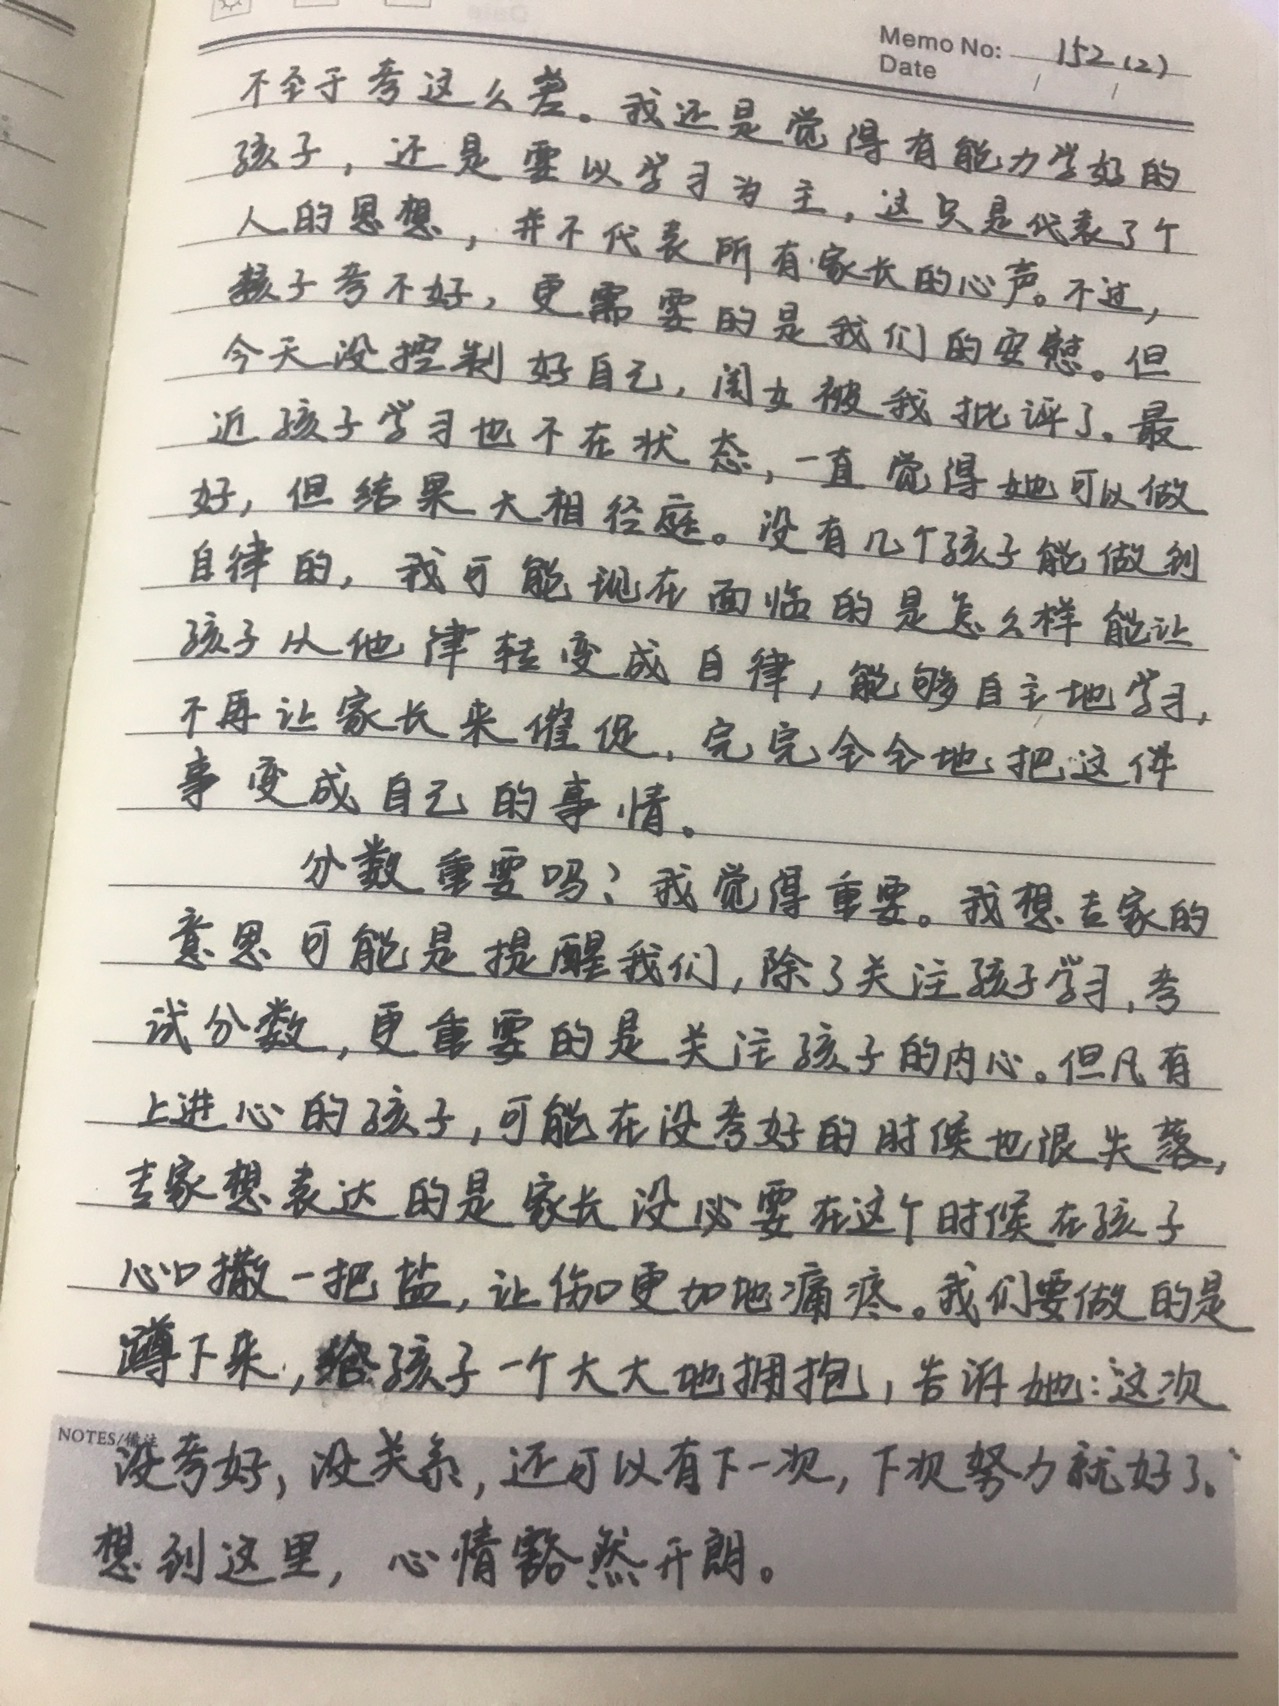 Memo No: 152(2)
Date / /
不至于考这么差。我还是觉得有能力学好的
孩子，还是要以学习为主，这只是代表了个
人的思想，并不代表所有家长的心声。不过，
孩子考不好，更需要的是我们的安慰。但
今天没控制好自己，闺女被我批评了。最
近孩子学习也不在状态，一直觉得她可以做
好，但结果大相径庭。没有几个孩子能做到
自律的，我可能现在面临的是怎么样能让
孩子从他律转变成自律，能够自主地学习，
不再让家长来催促，完完全全地把这件
事变成自己的事情。
分数重要吗？我觉得重要。我想专家的
意思可能是提醒我们，除了关注孩子学习，考
试分数，更重要的是关注孩子的内心。但凡有
上进心的孩子，可能在没考好的时候也很失落，
专家想表达的是家长没必要在这个时候在孩子
心口撒一把盐，让伤口更加地痛疼。我们要做的是
蹲下来，给孩子一个大大地拥抱，告诉她：这次
NOTES/备注
没考好，没关系，还可以有下一次，下次努力就好了。
想到这里，心情豁然开朗。